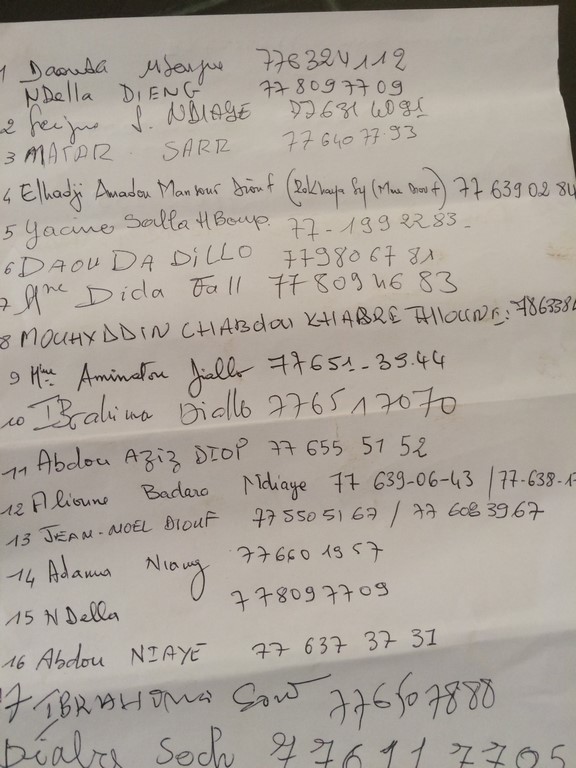 1 Daouda Mbengue 776324112
NDella DIENG 778097709
2 Serigne S. NDIAYE 77631 4091
3 MATAR SARR 77 640 77.93
4 Elhadji Amadou Mansour Diouf (Rokhaya Sy (Mme Diouf) 77 639 02 84
5 Yacine Salla MBoup. 77-199 22 83-
6 DAOUDA DiLLO 77980 67 81
7 Mme Dida Fall 77 809 46 83
8 CHABdou KHABRE 786338
9 Mme Aminatou Diallo 77651-39.44
10 IBrahima Diallo 776517070
11 Abdou AZiZ DIOP 77 655 51 52
12 Alioune Badara Ndiaye 77 639-06-43 / 77-638-1
13 JEAN-NOEL DIOUF 77 550 51 67 / 77 608 3967
14 Adama Niang 77660 1957
15 NDella 778097709
16 Abdou NIAYE 77 637 37 31
17 IBRAHOMa Sow 776507888
Dialre Soch 776117705